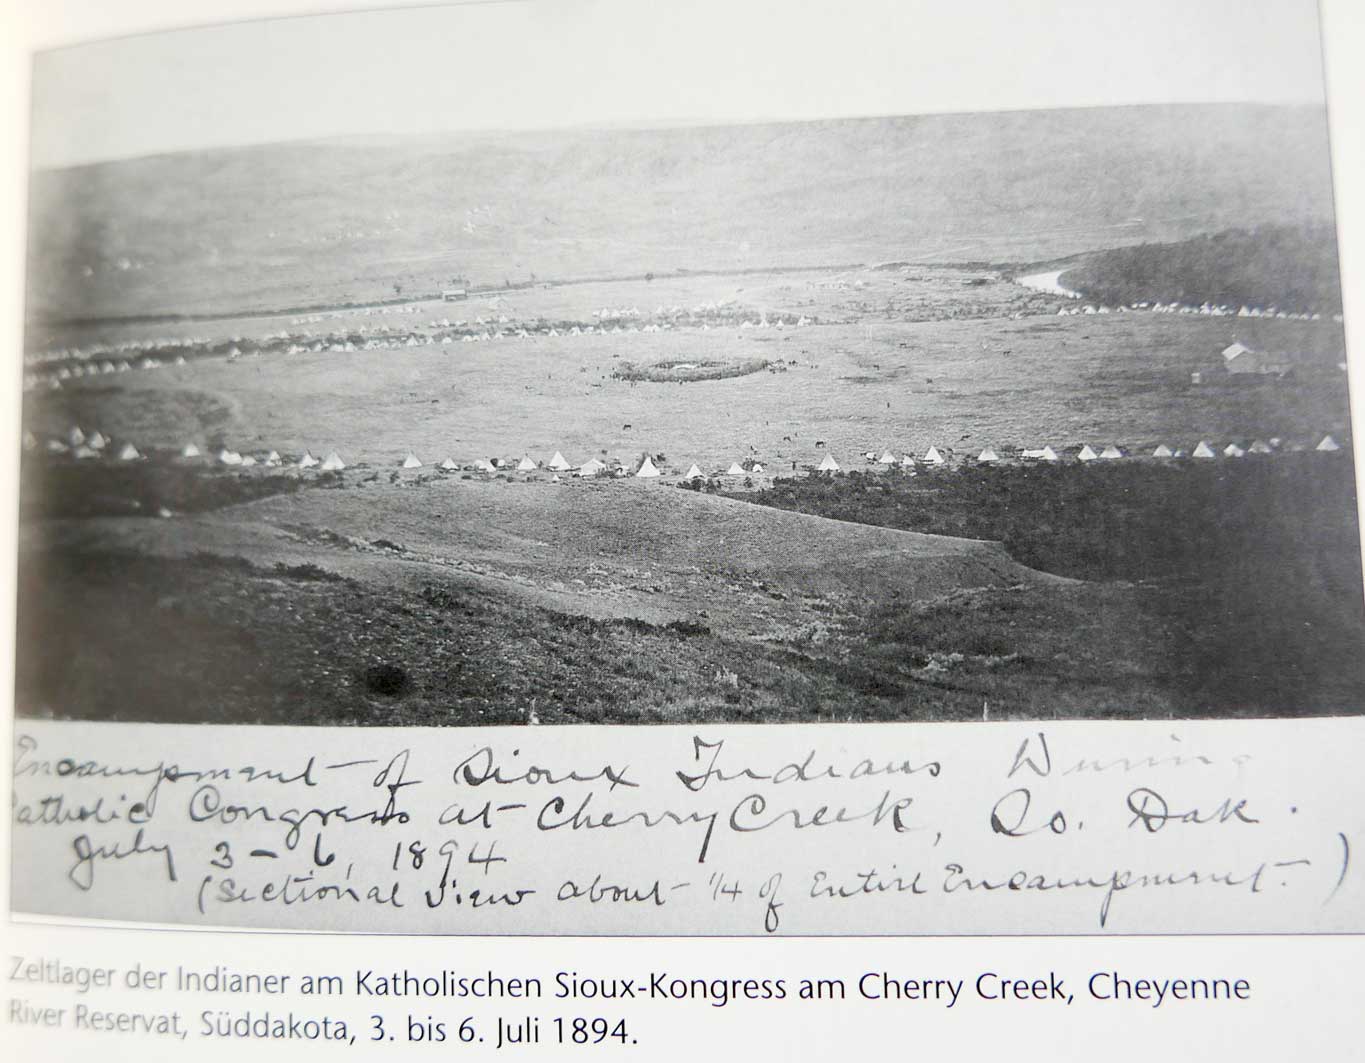 Encampment of Sioux Indians During
Catholic Congress at Cherry Creek, So. Dak.
July 3-6, 1894
(Sectional View about 1/4 of Entire Encampment.)
Zeltlager der Indianer am Katholischen Sioux-Kongress am Cherry Creek, Cheyenne
River Reservat, Süddakota, 3. bis 6. Juli 1894.